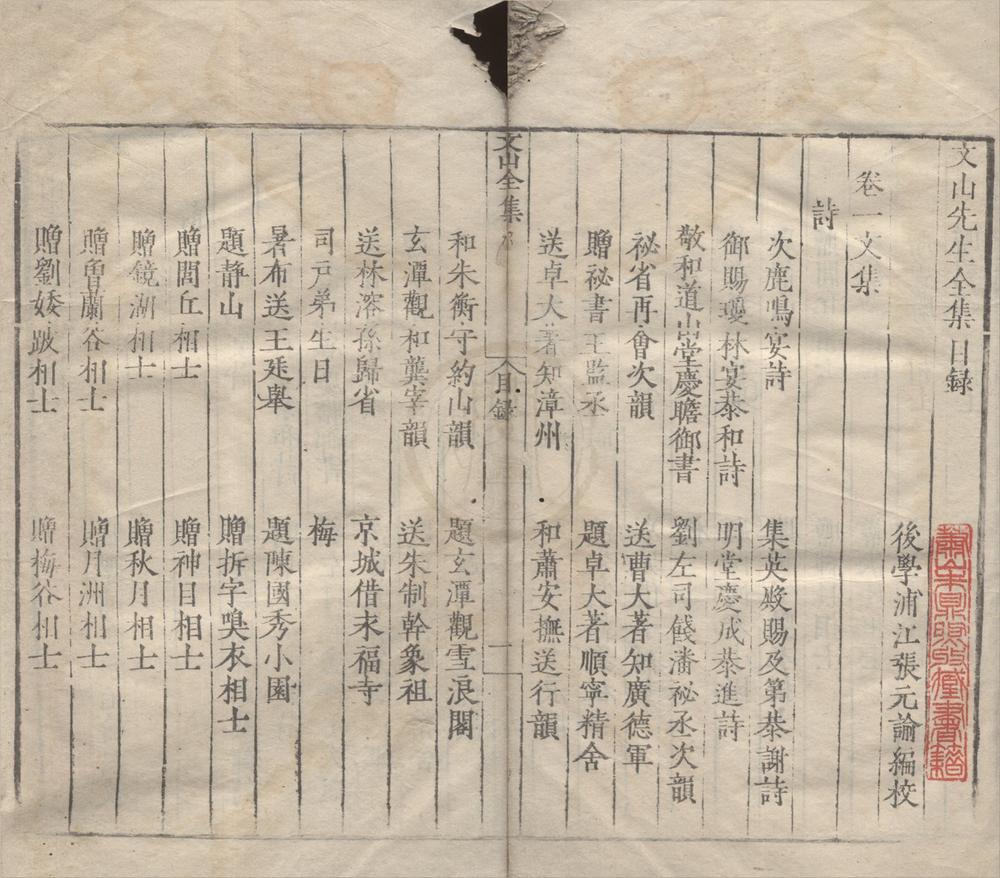 文山先生全集目録
後學浦江張元諭編校
卷一文集
詩
次鹿鳴宴詩
集英殿賜及第恭謝詩
御賜瓊林宴恭和詩
明堂慶成恭進詩
敬和道山堂慶瞻御書
劉左司餞潘祕丞次韻
祕省再會次韻
送曹大著知廣德軍
贈祕書王監丞
題卓大著順寧精舍
送卓大著知漳州
和蕭安撫送行韻
文山全集
目録
一
和朱衡守約山韻
題玄潭觀雪浪閣
玄潭觀和龔宰韻
送朱制幹象祖
送林溶孫歸省
京城借末福寺
司戸弟生日
梅
暑布送王廷舉
題陳國秀小園
題静山
贈拆字嗅衣相士
贈閭丘相士
贈神目相士
贈鏡湖相士
贈秋月相士
贈曾蘭谷相士
贈月洲相士
贈劉矮跛相士
贈梅谷相士